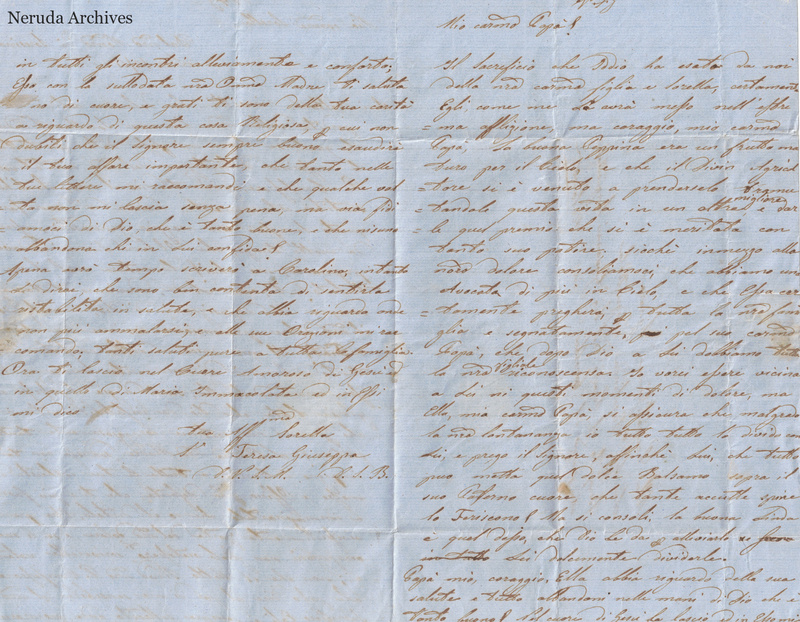 Neruda Archives
in tutti gli incontri allegramente e conforto;
con la sullodata Madre ti saluta
di cuore, e grati ti sono della tua carità
a riguardo di questa casa Religiosa, e cui non
dubito che il Signore sempre buono esaudirà
il tuo affare importante, che tanto nelle
tue lettere mi raccomandi e che qualche vol
ta non mi lascia senza pena, ma via fidi
amoci di Dio, che è tanto buono, e che nisuno
abbandona chi in Lui confida
Apena avrò tempo scriverò a Carolina, intanto
le dirai che sono ben contenta di sentirla
ristabilita in salute, e che abbia riguardo onde
non più ammalarsi, e alle sue Orazioni mi rac
comando, tanti saluti pure a tutta la famiglia.
Ora ti lascio nel Cuore Amoroso di Gesù e
in quello di Maria Immacolata ed in Essi
mi dico
tua Sorella
Teresa Giuseppa
Mio carmo Papà!
Il sacrificio che Iddio ha esato da noi
della nra carma figlia e sorella, certamente
Egli come me La avrà messo nell'estre
=ma afflizione, ma coraggio, mio carmo
Papà. La buona Peppina era un frutto ma
turo per il Cielo, e che il Divin Agricol
=tore si è venuto a prenderselo tramu
tandole questa vita in un altra migliore e dar
le quel premio che si è meritata con
tanto suo patire, sicchè in mezzo alla
nra dolore consoliamoci, che abbiamo una
Avocata di più in Cielo, e che Essa cer
=tamente pregherà, per tutta la nra fami
glia e segnatamente, pel suo carmo
Papà, che dopo Dio a Lei dobbiamo tutta
la nra figliale riconoscenza. Io vorei essere vicina
a Lei in questi momenti di dolore, ma
Ella, mio carmo Papà, si assicura che malgrado
la nra lontananza io tutto tutto lo divido con
Lei, e prego il Signore, affinchè Lui, che tutto
può metta quel dolce Balsamo sopra il
suo Paterno cuore, che tante acutte spine
lo Feriscono! Ma si consoli, la buona Linda
è quel desso, che Dio Le dà per alleviarlo
Lei dolcemente dividerle.
Papà mio, coraggio, Ella abbia riguardo della sua
salute e tutto abbandoni nelle mani di Dio che è
tanto buono! Nel cuore di Gesù La lascio ed in Esso mi